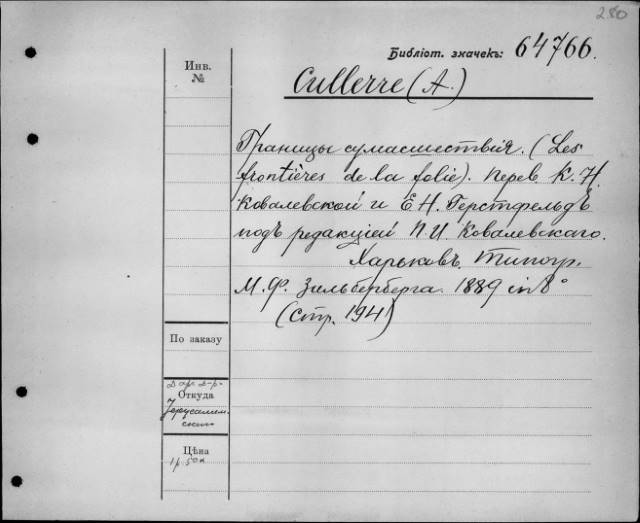 280
Библіот. значекъ: 64766.
Инв.
№
Cullerre (A.)
Границы сумасшествія. (Les
frontières de la folie). Перев. К. Н.
Ковалевской и Е. Н. Герстфельдъ
подъ редакціей П. И. Ковалевскаго.
Харьковъ. Типогр.
М. Ф. Зильберберга. 1889 in 8°
(Стр. 194)
По заказу
Даръ д-ра
Откуда
Іерусалим-
скаго
Цѣна
1 р. 50 к